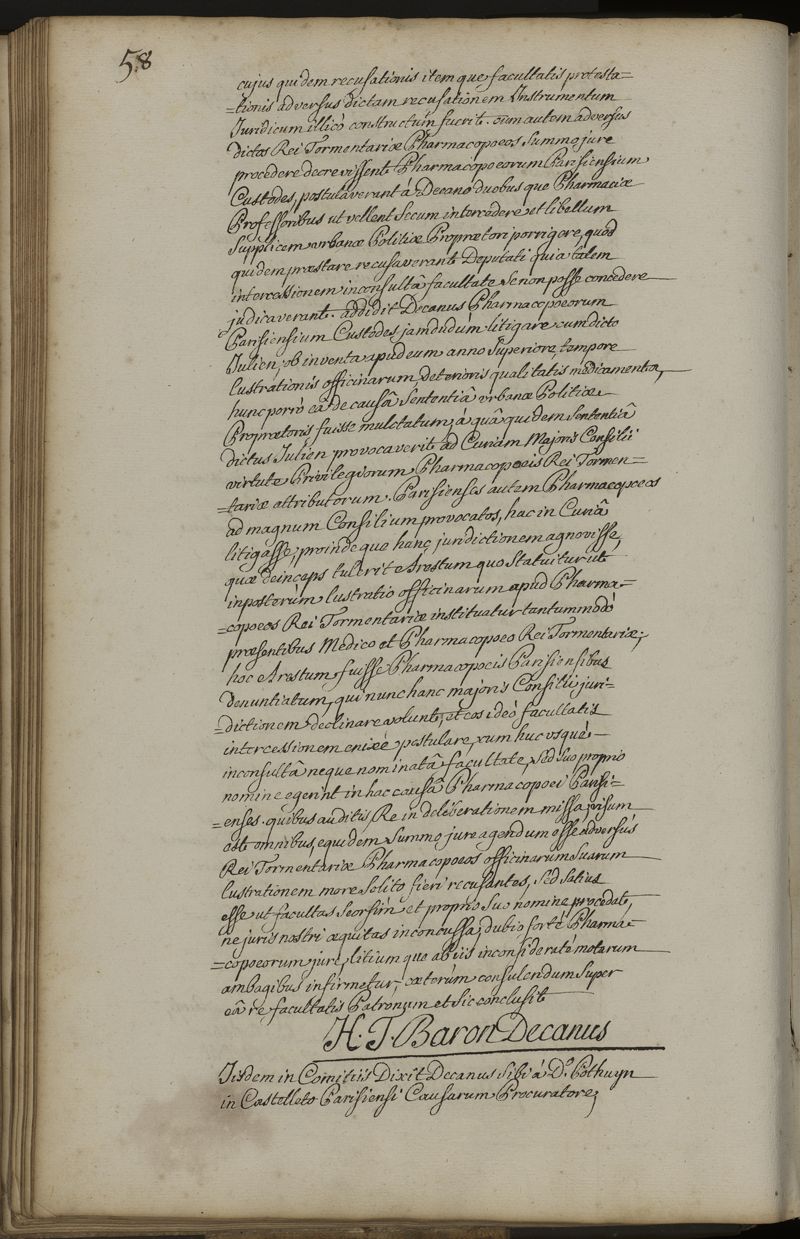 58
cujus quidem recusationis itemque facultatis protesta=
=tionis adversus dictam recusationem Instrumentum
Juridicum illicò constructum fuerit. cùm autem adversus
dictos Rei Tormentariæ Pharmacopoeos, Summo jure
procedere decrevissent Pharmacopoeorum Parisiensium
Custodes, postulaverant á Decano duobus que Pharmaciæ
Professoribus ut vellent Secum intercedere et libellum
Supplicem urbanæ Politiæ Proprætori porrigere, quod
quidem præstare recusaverant Deputati quia talem
intercessionem inconsultâ facultate, Se non posse concedere
judicaverant. addidit Decanus Pharmacopoeorum
Parisiensium Custodes jamdudùm litigare cum dicto
Julien, ob inventa apud eum anno Superiore, tempore
lustrationis officinarum, deterioris qualitatis medicamenta,
hunc porrò eâ de causâ Sententiâ urbanæ Politiæ
Proprætoris fuisse mulctatum, á quâ quidem Sententiâ
dictus Julien provocaverit ad Curiam Majoris Consilii
virtute Privilegiorum Pharmacopoeis Rei Tormen=
=tariæ attributorum. Parisienses autem Pharmacopoeos
ad magnum Consilium provocatos, hac in Curiâ
litigasse, proindeque hanc jurisdictionem agnovisse,
quæ deinceps tulerit Arestum quo Statuitur ut
inposterùm lustratio officinarum apud Pharma=
=copoeos Rei Tormentariæ instituatur tantummodò
præsentibus Medico et Pharmacopoeo Rei Tormentariæ;
hoc Arestum fuisse Pharmacopoeis Parisiensibus
denuntiatum, qui nunc hanc majoris Consilii juri=
=dictionem declinare volunt, et eos ideó facultatis
intercessionem enixè postulare, cum huc usquè
inconsultâ neque nominatâ facultate, Sed Suo proprio
nomine egerint in hac causâ Pharmacopoei Parisi=
=enses. quibus auditis, Re in deliberationem missa, visum
est omnibus, equidem Summo jure agendum esse adversùs
Rei Tormentariæ Pharmacopoeos officinarum Suarum
lustrationem more Solito fieri recusantes, Sed Satius
esse ut facultas Seorsìm et proprio Suo nomine procedat,
ne juris nostri æquitas inconcussa, dubio fortè Pharma=
=copoeorum jure, litium que ab iis inconsideratè motarum
ambagibus infirmetur, cæterùm consulendum Super
eâ re facultatis Patronum et Sic conclusit
H. T. Baron Decanus
Iisdem in Comitiis Dixit Decanus Sibi á D.º Pothuyn
in Castelleto Parisiensi Causarum Procuratore,